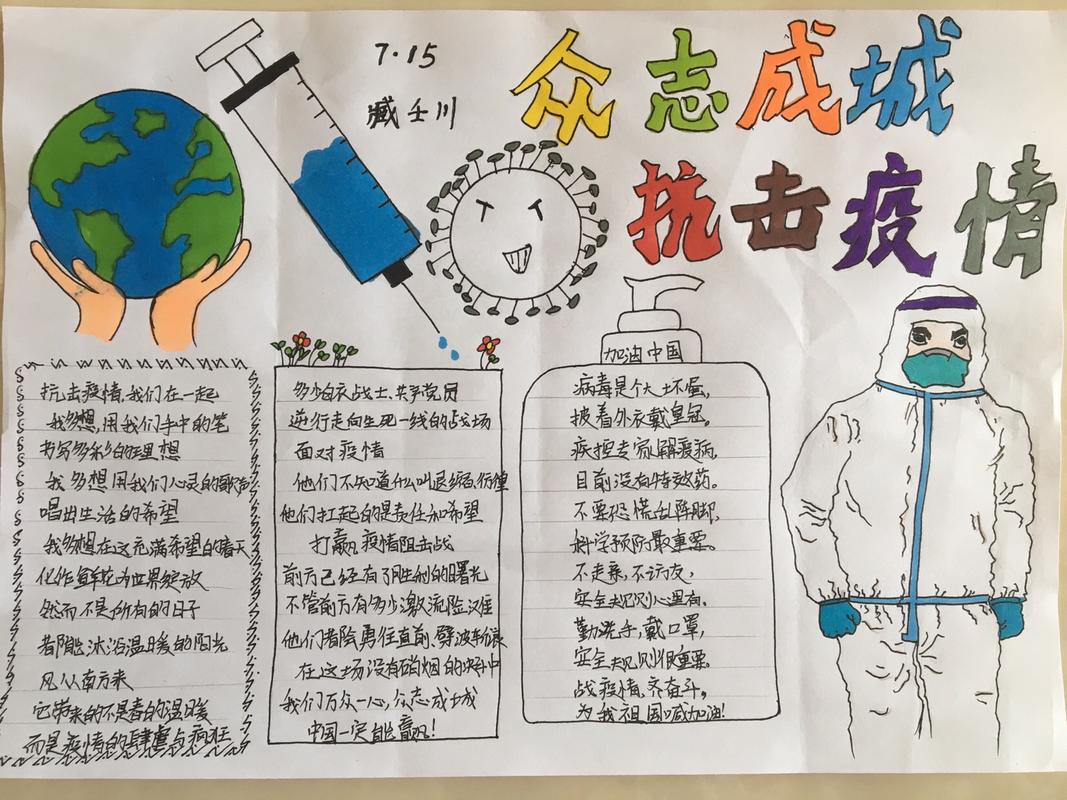 众志成城
抗击疫情
7·15
臧壬川
抗击疫情,我们在一起
我多想,用我们手中的笔
书写多彩的理想
我多想用我们心灵的歌声
唱出生活的希望
我多想在这充满希望的春天
化作鲜花为世界绽放
然而不是所有的日子
都能沐浴温暖的阳光
风从南方来
它带来的不是春的温暖
而是疫情的肆虐与疯狂
多少白衣战士、共产党员
逆行走向生死一线的战场
面对疫情
他们不知道什么叫退缩彷徨
他们扛起的是责任和希望
打赢疫情阻击战
前方已经有了胜利的曙光
不管前方有多少激流险滩
他们都会勇往直前、劈波斩浪
在这场没有硝烟的决斗中
我们万众一心,众志成城
中国一定能赢!
加油中国
病毒是个大坏蛋,
披着外衣戴皇冠。
疾控专家解疫病,
目前没有特效药。
不要恐慌乱阵脚,
科学预防最重要。
不走亲,不访友,
安全规则心里有。
勤洗手,戴口罩,
安全规则很重要。
战疫情,齐奋斗,
为我祖国喊加油!